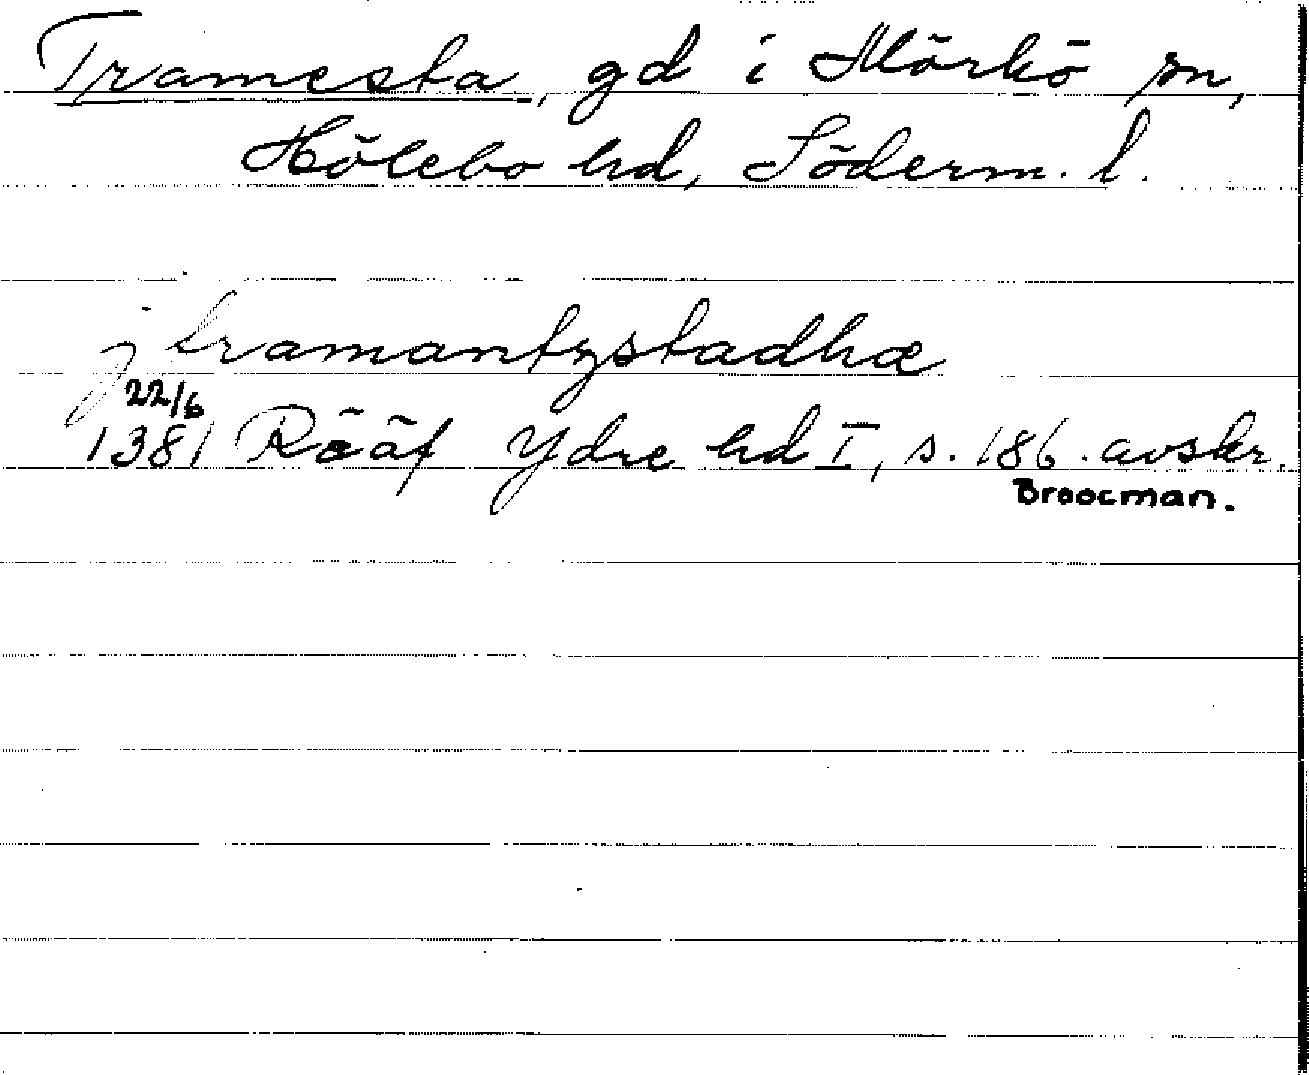 Tramesta, gd i Mörkö sn,
Hölebo hd, Söderm. l.
j tramantzstadhæ
22/6
1381 Rääf Ydre hd I, s. 186. avskr.
Broocman.